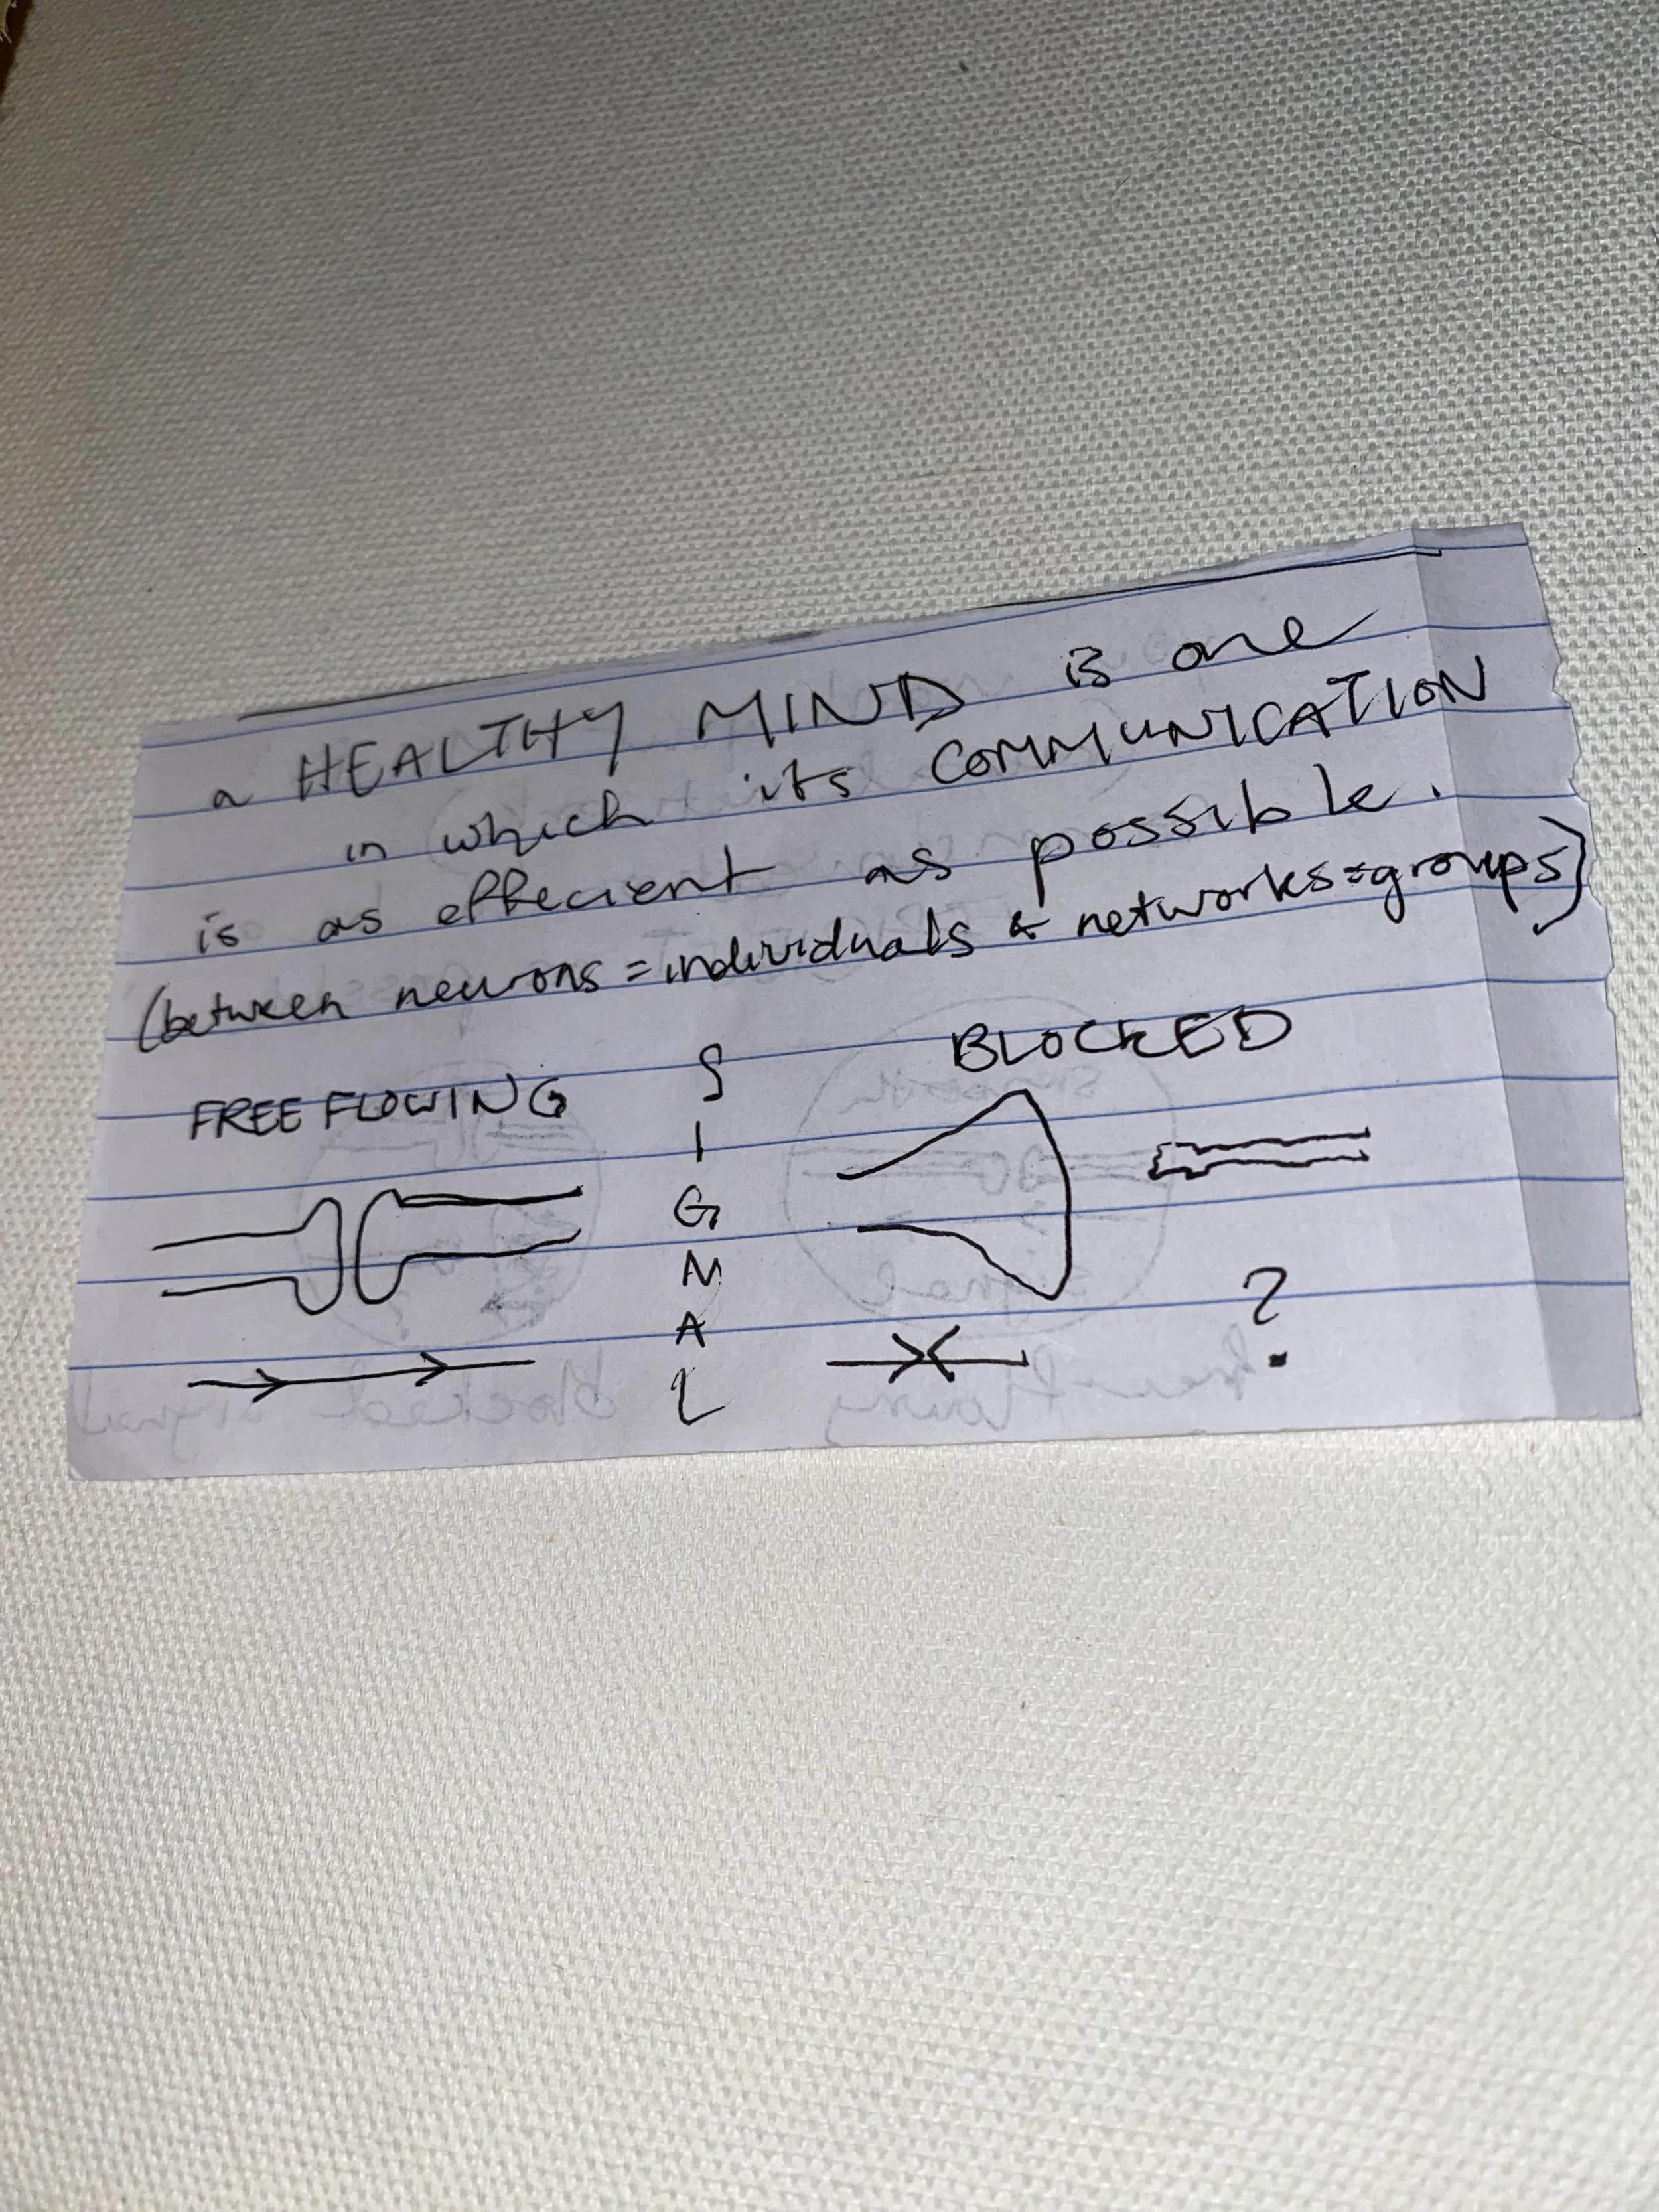 a HEALTHY MIND is one
in which its COMMUNICATION
is as effecient as possible.
(between neurons = individuals & networks=groups)
FREE FLOWING
S
I
G
N
A
L
BLOCKED
?